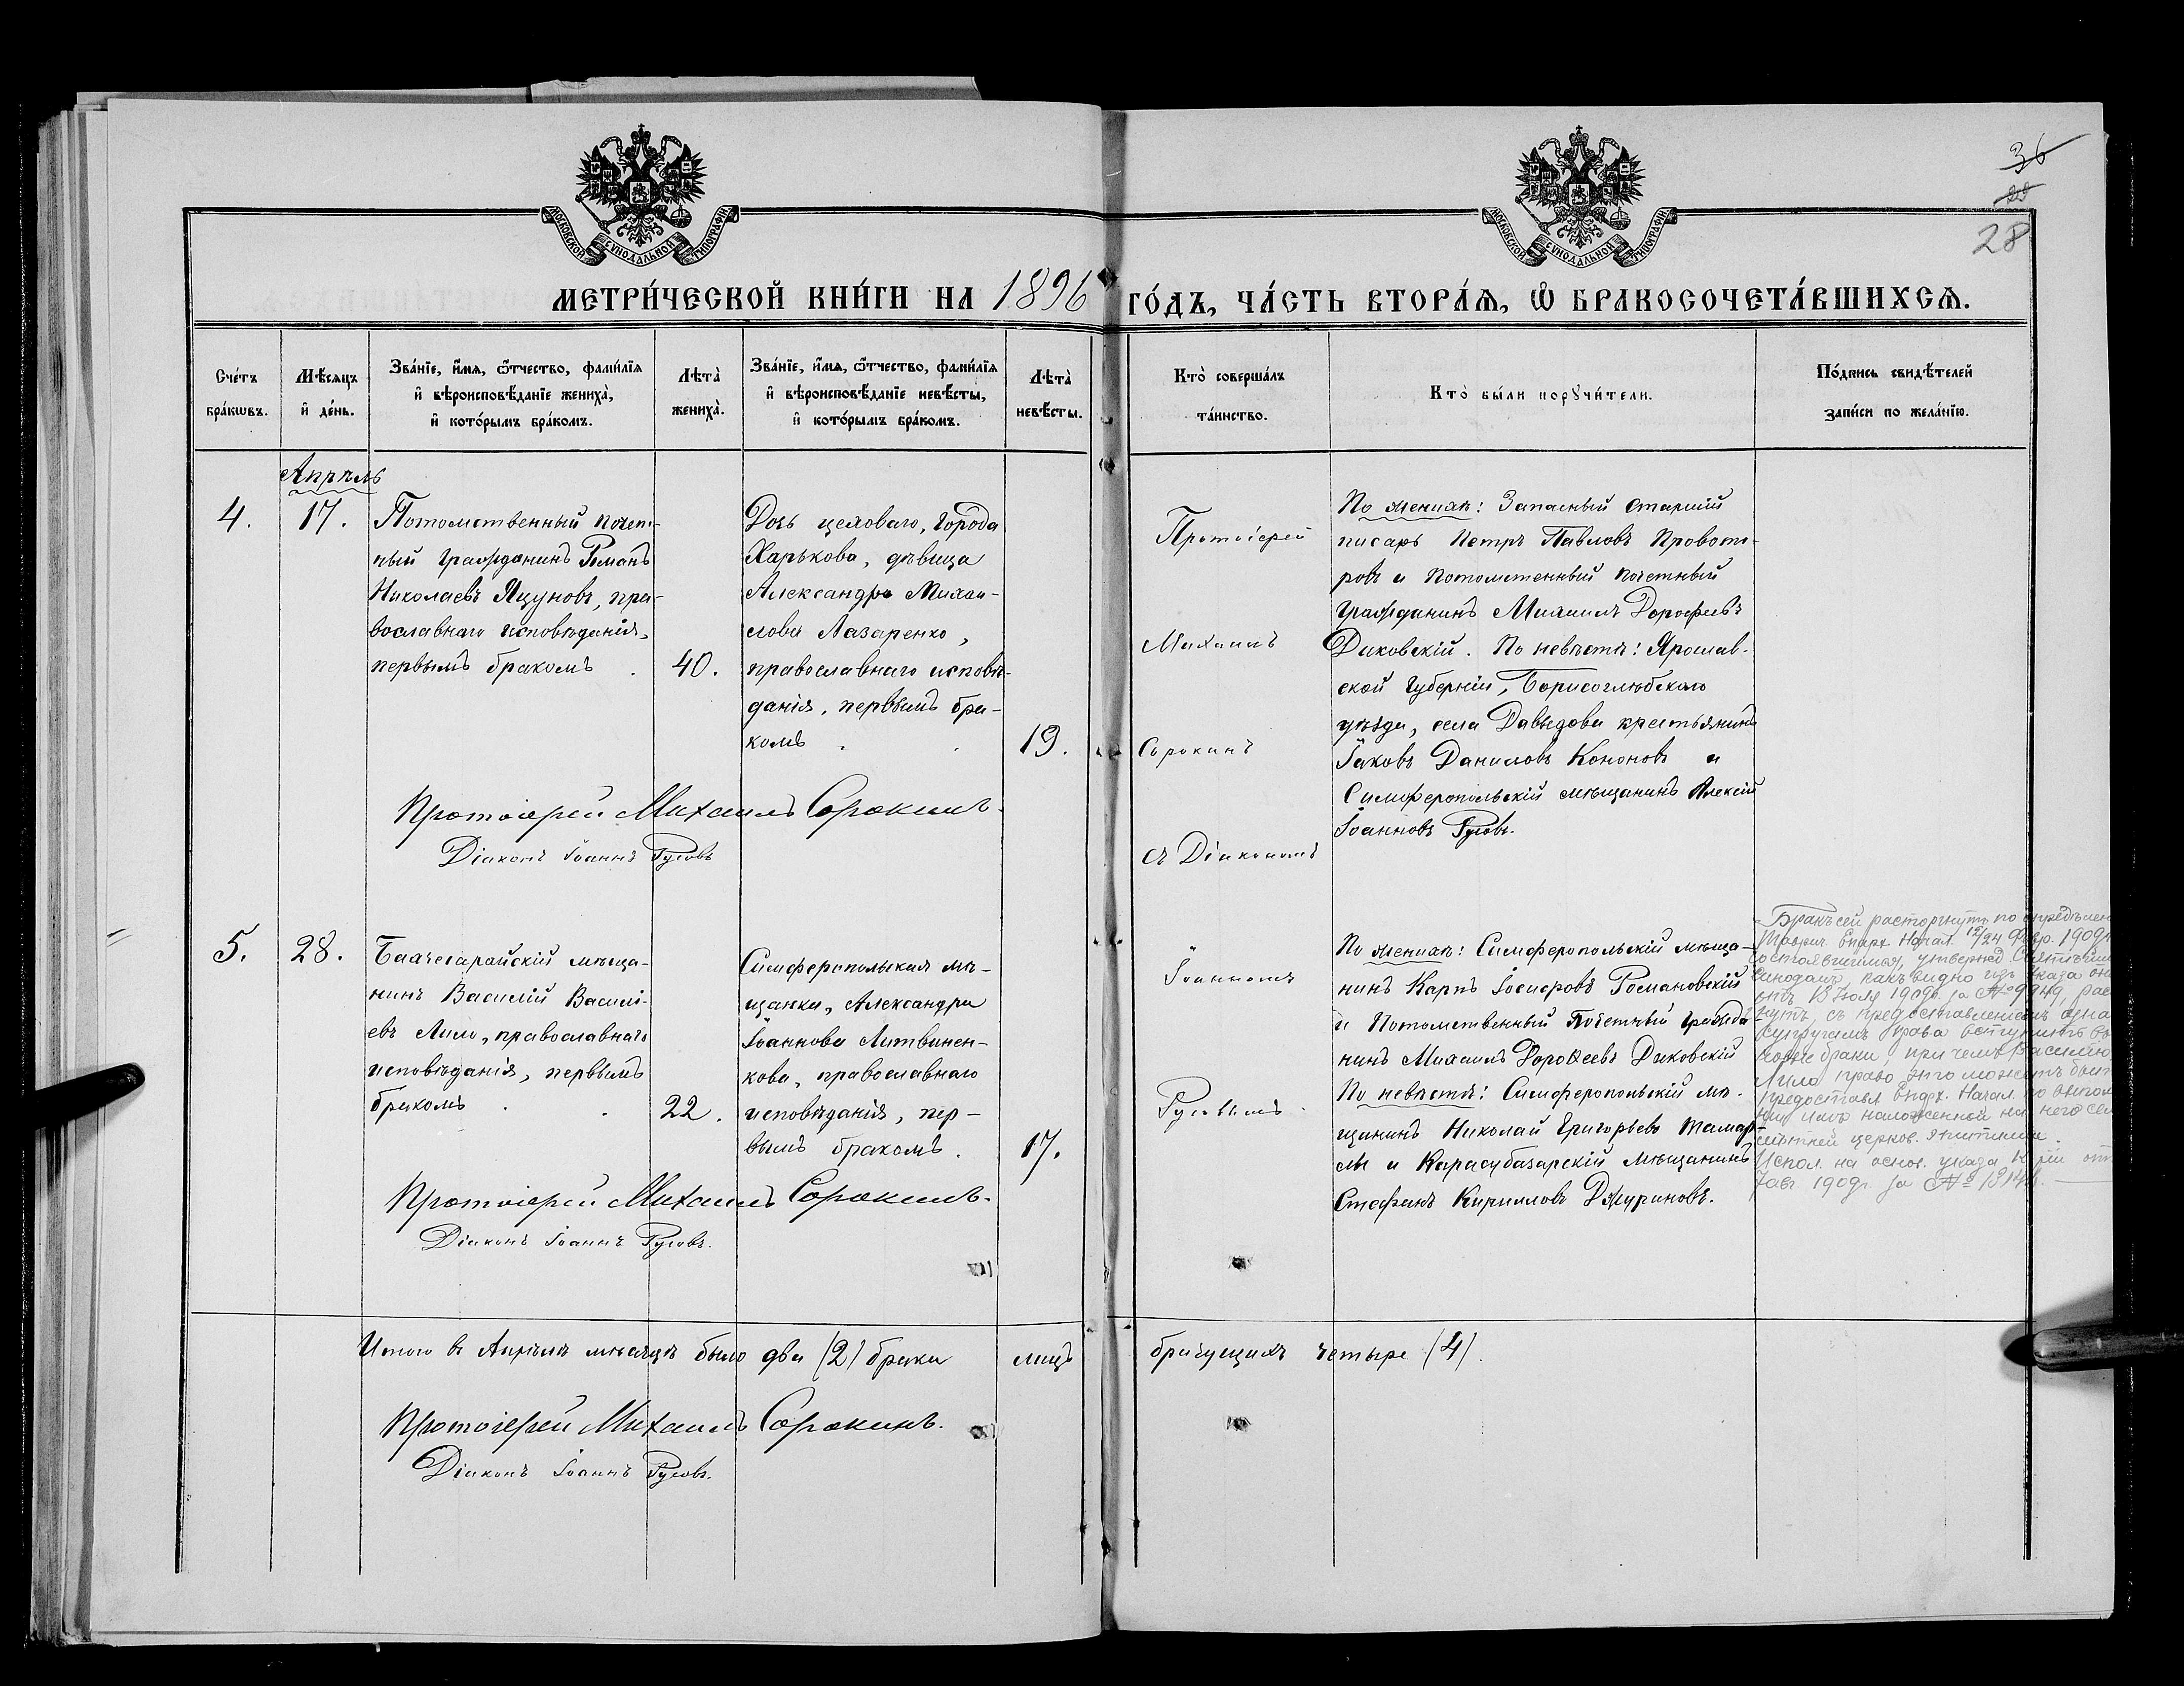 МОСКОВСКОЙ СѴНОДАЛЬНОЙ ТИПОГРАФІИ
МОСКОВСКОЙ СѴНОДАЛЬНОЙ ТИПОГРАФІИ
36
28
МЕТРИ́ЧЕСКОЙ КНИ́ГИ НА 1896 ГО́ДЪ, ЧА́СТЬ ВТОРА́Я, Ѽ БРАКОСОЧЕТА́ВШИХСЯ.
Сче́тъ
бра́кѡвъ.
Мѣ́сяцъ
и҆ де́нь.
Зва́нїе, и҆́мя, ѻ҆́тчество, фами́лїя
и҆ вѣроисповѣ́данїе жениха̀,
и҆ кото́рымъ бра́комъ.
Лѣта̀
жениха̀.
Зва́нїе, и҆́мя, ѻ҆́тчество, фами́лїя
и҆ вѣроисповѣ́данїе невѣ́сты,
и҆ кото́рымъ бра́комъ.
Лѣта̀
невѣ́сты.
Кто̀ соверша́лъ
та́инство.
Кто̀ бы́ли порꙋчи́тели.
По́дпись свидѣ́телей
за́писи по жела́нїю.
Апрѣль
4.
17.
Потомственный почет-
ный гражданинъ Романъ
Николаевъ Яцуновъ, пра-
вославнаго исповѣданія,
первымъ бракомъ .
40.
Дочь цеховаго, города
Харькова, дѣвица
Александра Михаи-
лова Лазаренко,
православнаго исповѣ-
данія, первымъ бра-
комъ . .
19.
Протоіерей Михаилъ Сорокинъ.
Діаконъ Іоаннъ Русовъ
Протоіерей
Михаилъ
Сорокинъ
съ Діакономъ
По женихѣ: Запасный старшій
писарь Петръ Павловъ Провото-
ровъ и Потомственный почетный
гражданинъ Михаилъ Дорофеевъ
Диковскій. По невѣстѣ: Ярослав-
ской губерніи, Борисоглѣбскаго
уѣзда, села Давыдова крестьянинъ
Іаковъ Даниловъ Кононовъ и
Симферопольскій мѣщанинъ Алексій
Іоанновъ Русовъ.
5.
28.
Бахчесарайскій мѣща-
нинъ Василій Василі-
евъ Лило, православнаго
исповѣданія, первымъ
бракомъ . .
22.
Симферопольская мѣ-
щанка, Александра
Іоаннова Литвинен-
кова, православнаго
исповѣданія, пер-
вымъ бракомъ.
17.
Протоіерей Михаилъ Сорокинъ.
Діаконъ Іоаннъ Русовъ.
Іоанномъ
Русовымъ.
По женихѣ: Симферопольскій мѣща-
нинъ Карпъ Іосифовъ Романовскій
и Потомственный Почетный гражда-
нинъ Михаилъ Дороѳеевъ Диковскій
По невѣстѣ: Симферопольскій мѣ-
щанинъ Николай Григорьевъ
и Карасубазарскій мѣщанинъ
Стефанъ Кирилловъ Джуриновъ.
Бракъ сей расторгнутъ по опредѣлен
Таврич. Епарх. Начал. 12/24 Февр. 1909 г.
состоявшимся, утвержд. Святѣйш
Синодомъ, какъ видно изъ указа
отъ 18 Іюля 1909 г. за № 9949,
съ предоставленіемъ
супругамъ права вступить въ
новые браки, при чемъ Василію
Лило право это можетъ быть
предоставл. Епарх. Начал. по выпол
имъ наложенной на него
церков. эпитиміи.
Испол. на основ. указа отъ
1909 г. за №
Итого въ Апрѣлѣ мѣсяцѣ было два (2) брака лицъ брачущихъ четыре (4).
Протоіерей Михаилъ Сорокинъ.
Діаконъ Іоаннъ Русовъ.